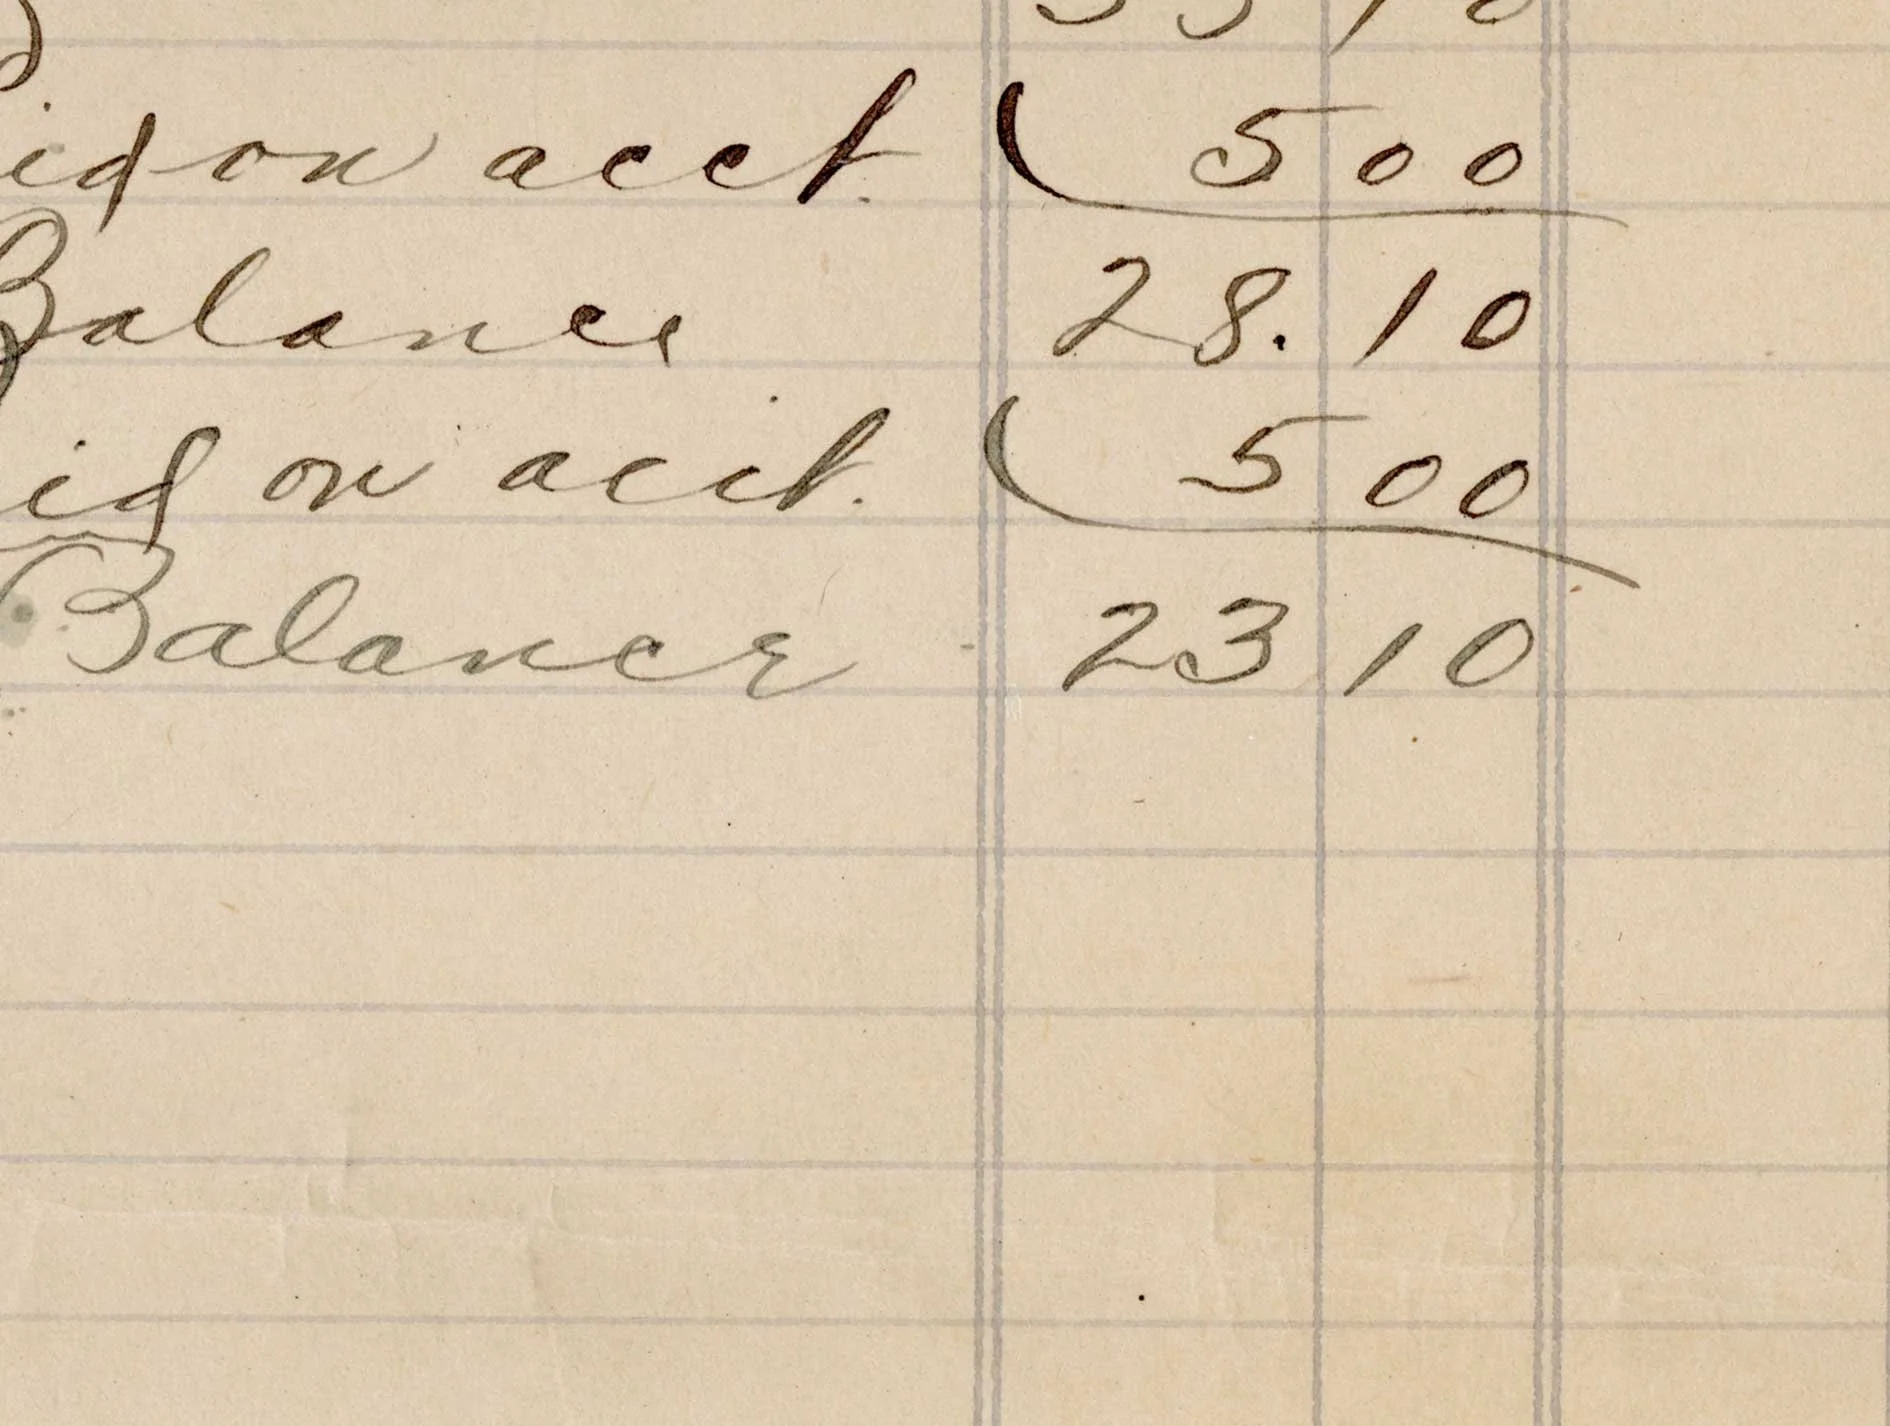 id on acct. 5 00
Balance 28. 10
id on acct. 5 00
Balance 23 10